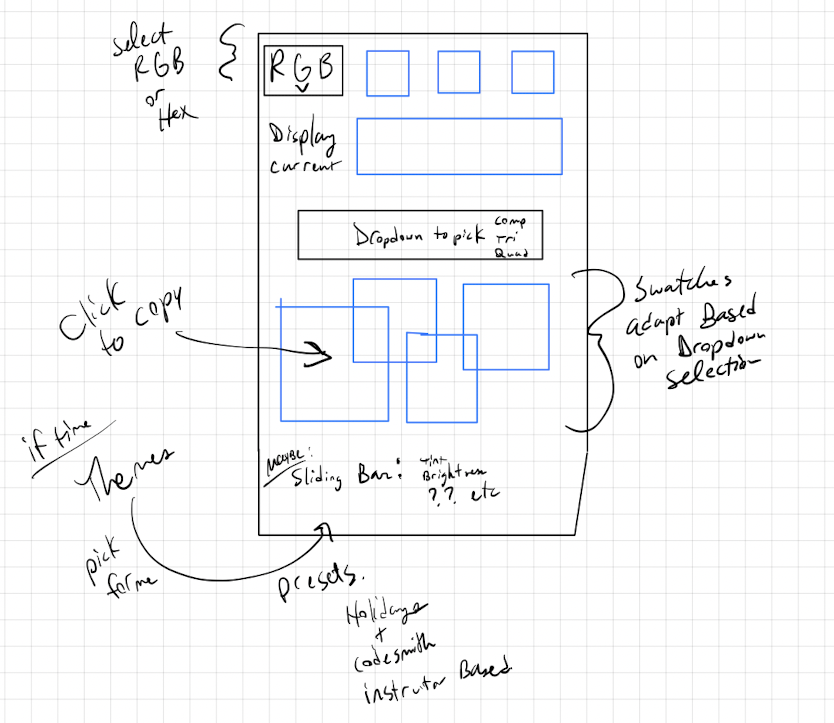 select
RGB
or
Hex
RGB
Display
current
Dropdown to pick
Comp
Tri
Quad
Click
to copy
Swatches
adapt Based
on Dropdown
selection
if time
Themes
pick
for me
MAYBE:
Sliding Bar:
Tint
Brightness
?? etc
presets.
Holidays
+
codesmith
instrutor Based